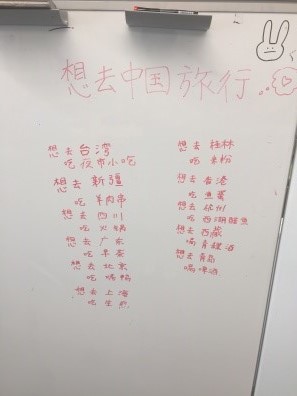 想去中国旅行
想去台湾
吃夜市小吃
想去新疆
吃羊肉串
想去四川
吃火锅
想去广东
吃早茶
想去北京
吃烤鸭
想去上海
吃生煎
想去桂林
吃米粉
想去香港
吃鱼蛋
想去杭州
吃西湖醋鱼
想去西藏
喝青稞酒
想去青岛
喝啤酒